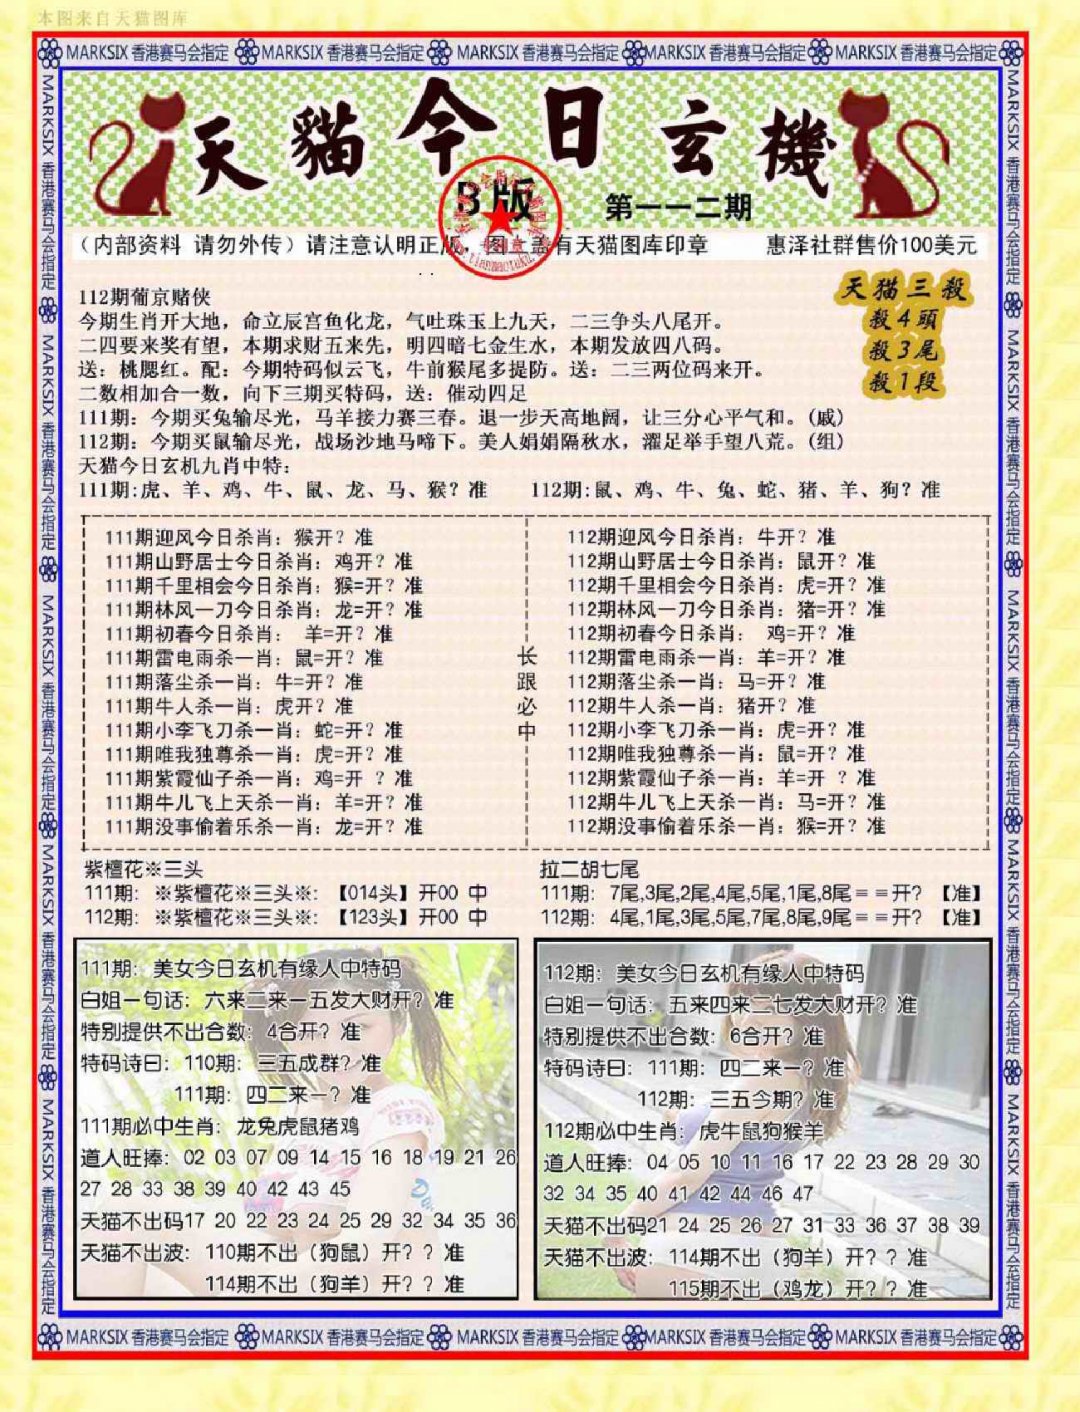 本图来自天猫图库
MARKSIX 香港赛马会指定 MARKSIX 香港赛马会指定 MARKSIX 香港赛马会指定 MARKSIX 香港赛马会指定 MARKSIX 香港赛马会指定
天貓今日玄機
B版
第一一二期
(内部资料 请勿外传) 请注意认明正版, 图上盖有天猫图库印章 惠泽社群售价100美元
天猫三殺
殺4頭
殺3尾
殺1段
112期葡京赌侠
今期生肖开大地, 命立辰宫鱼化龙, 气吐珠玉上九天, 二三争头八尾开。
二四要来奖有望, 本期求财五来先, 明四暗七金生水, 本期发放四八码。
送: 桃腮红。配: 今期特码似云飞, 牛前猴尾多提防。送: 二三两位码来开。
二数相加合一数, 向下三期买特码, 送: 催动四足
111期: 今期买兔输尽光, 马羊接力赛三春。退一步天高地阔, 让三分心平气和。(戚)
112期: 今期买鼠输尽光, 战场沙地马啼下。美人娟娟隔秋水, 濯足举手望八荒。(组)
天猫今日玄机九肖中特:
111期:虎、羊、鸡、牛、鼠、龙、马、猴? 准 112期:鼠、鸡、牛、兔、蛇、猪、羊、狗? 准
111期迎风今日杀肖: 猴开? 准
111期山野居士今日杀肖: 鸡开? 准
111期千里相会今日杀肖: 猴=开? 准
111期林风一刀今日杀肖: 龙=开? 准
111期初春今日杀肖: 羊=开? 准
111期雷电雨杀一肖: 鼠=开? 准
111期落尘杀一肖: 牛=开? 准
111期牛人杀一肖: 虎开? 准
111期小李飞刀杀一肖: 蛇=开? 准
111期唯我独尊杀一肖: 虎=开? 准
111期紫霞仙子杀一肖: 鸡=开 ? 准
111期牛儿飞上天杀一肖: 羊=开? 准
111期没事偷着乐杀一肖: 龙=开? 准
长跟必中
112期迎风今日杀肖: 牛开? 准
112期山野居士今日杀肖: 鼠开? 准
112期千里相会今日杀肖: 虎=开? 准
112期林风一刀今日杀肖: 猪=开? 准
112期初春今日杀肖: 鸡=开? 准
112期雷电雨杀一肖: 羊=开? 准
112期落尘杀一肖: 马=开? 准
112期牛人杀一肖: 猪开? 准
112期小李飞刀杀一肖: 虎=开? 准
112期唯我独尊杀一肖: 鼠=开? 准
112期紫霞仙子杀一肖: 羊=开 ? 准
112期牛儿飞上天杀一肖: 马=开? 准
112期没事偷着乐杀一肖: 猴=开? 准
紫檀花※三头
111期: ※紫檀花※三头※: 【014头】开00 中
112期: ※紫檀花※三头※: 【123头】开00 中
拉二胡七尾
111期: 7尾,3尾,2尾,4尾,5尾,1尾,8尾==开? 【准】
112期: 4尾,1尾,3尾,5尾,7尾,8尾,9尾==开? 【准】
111期: 美女今日玄机有缘人中特码
白姐一句话: 六来二来一五发大财开? 准
特别提供不出合数: 4合开? 准
特码诗曰: 110期: 三五成群? 准
111期: 四二来一? 准
111期必中生肖: 龙兔虎鼠猪鸡
道人旺捧: 02 03 07 09 14 15 16 18 19 21 26
27 28 33 38 39 40 42 43 45
天猫不出码17 20 22 23 24 25 29 32 34 35 36
天猫不出波: 110期不出 (狗鼠) 开? ? 准
114期不出 (狗羊) 开? ? 准
112期: 美女今日玄机有缘人中特码
白姐一句话: 五来四来二七发大财开? 准
特别提供不出合数: 6合开? 准
特码诗曰: 111期: 四二来一? 准
112期: 三五今期? 准
112期必中生肖: 虎牛鼠狗猴羊
道人旺捧: 04 05 10 11 16 17 22 23 28 29 30
32 34 35 40 41 42 44 46 47
天猫不出码21 24 25 26 27 31 33 36 37 38 39
天猫不出波: 114期不出 (狗羊) 开? ? 准
115期不出 (鸡龙) 开? ? 准
MARKSIX 香港赛马会指定 MARKSIX 香港赛马会指定 MARKSIX 香港赛马会指定 MARKSIX 香港赛马会指定 MARKSIX 香港赛马会指定